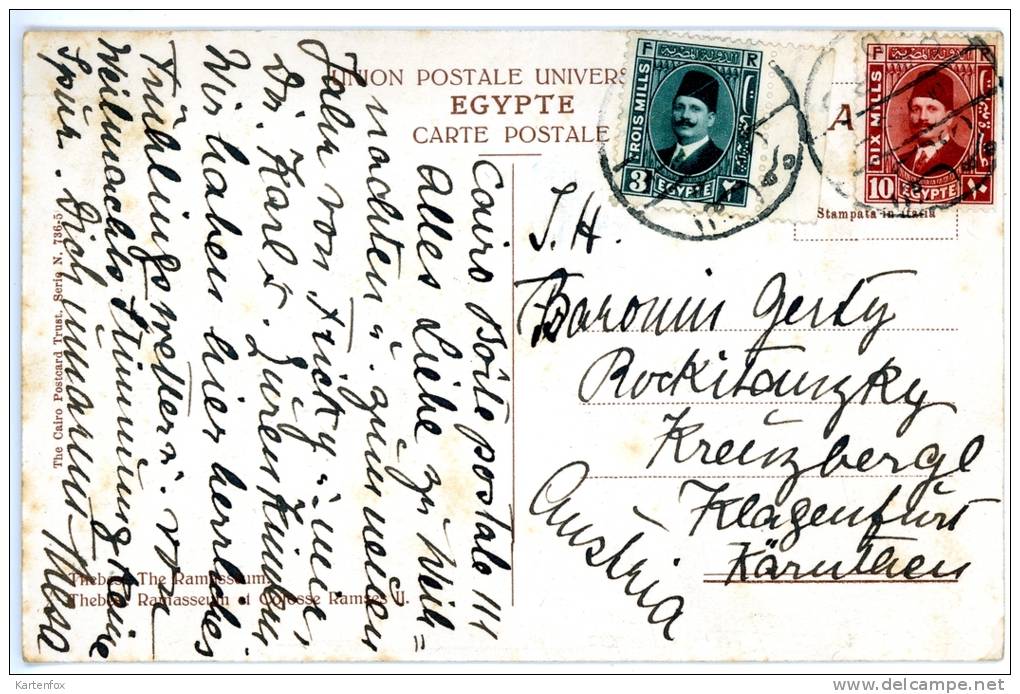 UNION POSTALE UNIVERS
EGYPTE
CARTE POSTALE
A
Stampata in Italia
F R
TROIS MILLS
3 EGYPTE ٣
F R
DIX MILLS
10 EGYPTE ١٠
Cairo Boîte postale 111
Alles Liebe zu Weih=
nachten u. zum neuen
Jahr von Fricky, mir,
Dr. Karl u.
Wir haben hier herrliches
Frühlingswetter u. von
Weihnachtsstimmung keine
Spur. Dich umarmt
I. H.
Baronin Gerty
Rockitanzky
Kreuzbergl
Klagenfurt
Kärnthen
Austria
The Cairo Postcard Trust, Serie N. 736-5
Thebes, The Ramasseum.
Thebes, Ramasseum et Colosse Ramses II.
Kartenfox
delcampe.net